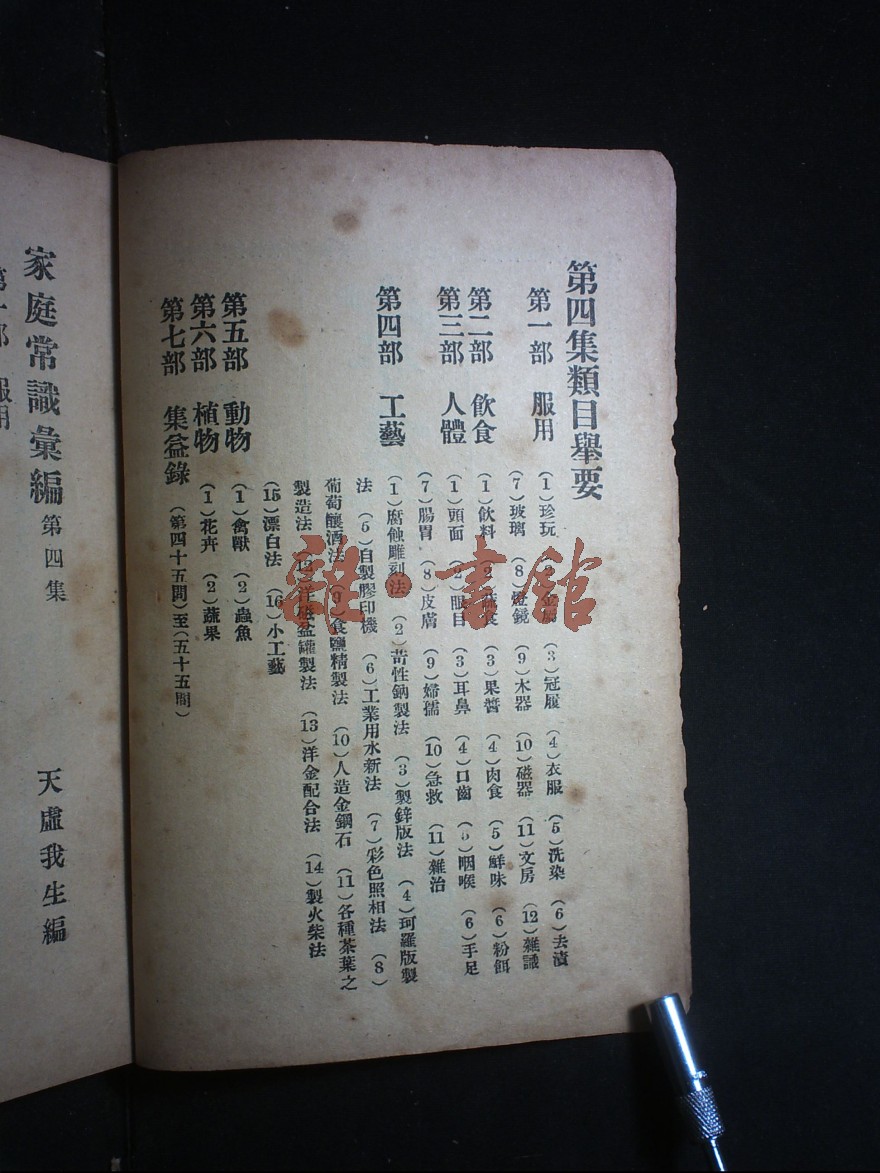 第四集類目舉要
第一部 服用 (1)珍玩 (2)金屬 (3)冠履 (4)衣服 (5)洗染 (6)去漬
(7)玻璃 (8)燈鏡 (9)木器 (10)磁器 (11)文房 (12)雜識
第二部 飲食 (1)飲料 (2)蔬食 (3)果醬 (4)肉食 (5)鮮味 (6)粉餌
第三部 人體 (1)頭面 (2)眼目 (3)耳鼻 (4)口齒 (5)咽喉 (6)手足
(7)腸胃 (8)皮膚 (9)婦孺 (10)急救 (11)雜治
第四部 工藝 (1)腐蝕雕刻法 (2)苛性鈉製法 (3)製鋅版法 (4)珂羅版製
法 (5)自製膠印機 (6)工業用水新法 (7)彩色照相法 (8)
葡萄釀酒法 (9)食鹽精製法 (10)人造金鋼石 (11)各種茶葉之
製造法 (12)洋磁盆罐製法 (13)洋金配合法 (14)製火柴法
(15)漂白法 (16)小工藝
第五部 動物 (1)禽獸 (2)蟲魚
第六部 植物 (1)花卉 (2)蔬果
第七部 集益錄 (第四十五問)至(五十五問)
家庭常識彙編 第四集 天虛我生編
第一部 服用
雜·書館